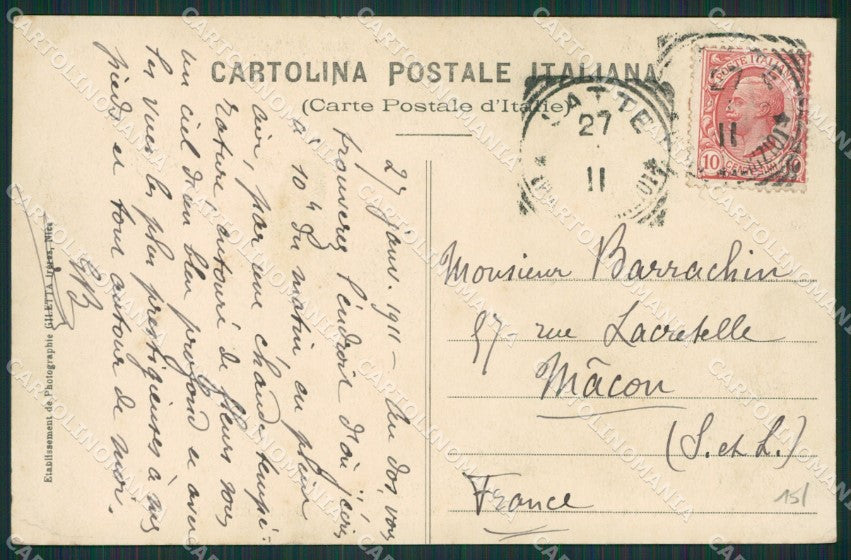 CARTOLINA POSTALE ITALIANA
(Carte Postale d'Italie)
POSTE ITALIANE
10 CENTESIMI 10
LATTE
27
1
11
27
11
27 janv. 1911 — Au dos, vous
trouverez l'endroit d'où j'écris
à 10h du matin en plein
air, par une chaude tempé-
rature, entouré de fleurs sous
un ciel d'un bleu profond et avec
les vues les plus prestigieuses à mes
pieds et tout autour de moi.
GB
Monsieur Barrachin
57 rue Lacretelle
Mâcon
(S. et L.)
France
15/
Etablissement de Photographie GILETTA frères, Nice
CARTOLINOMANIA